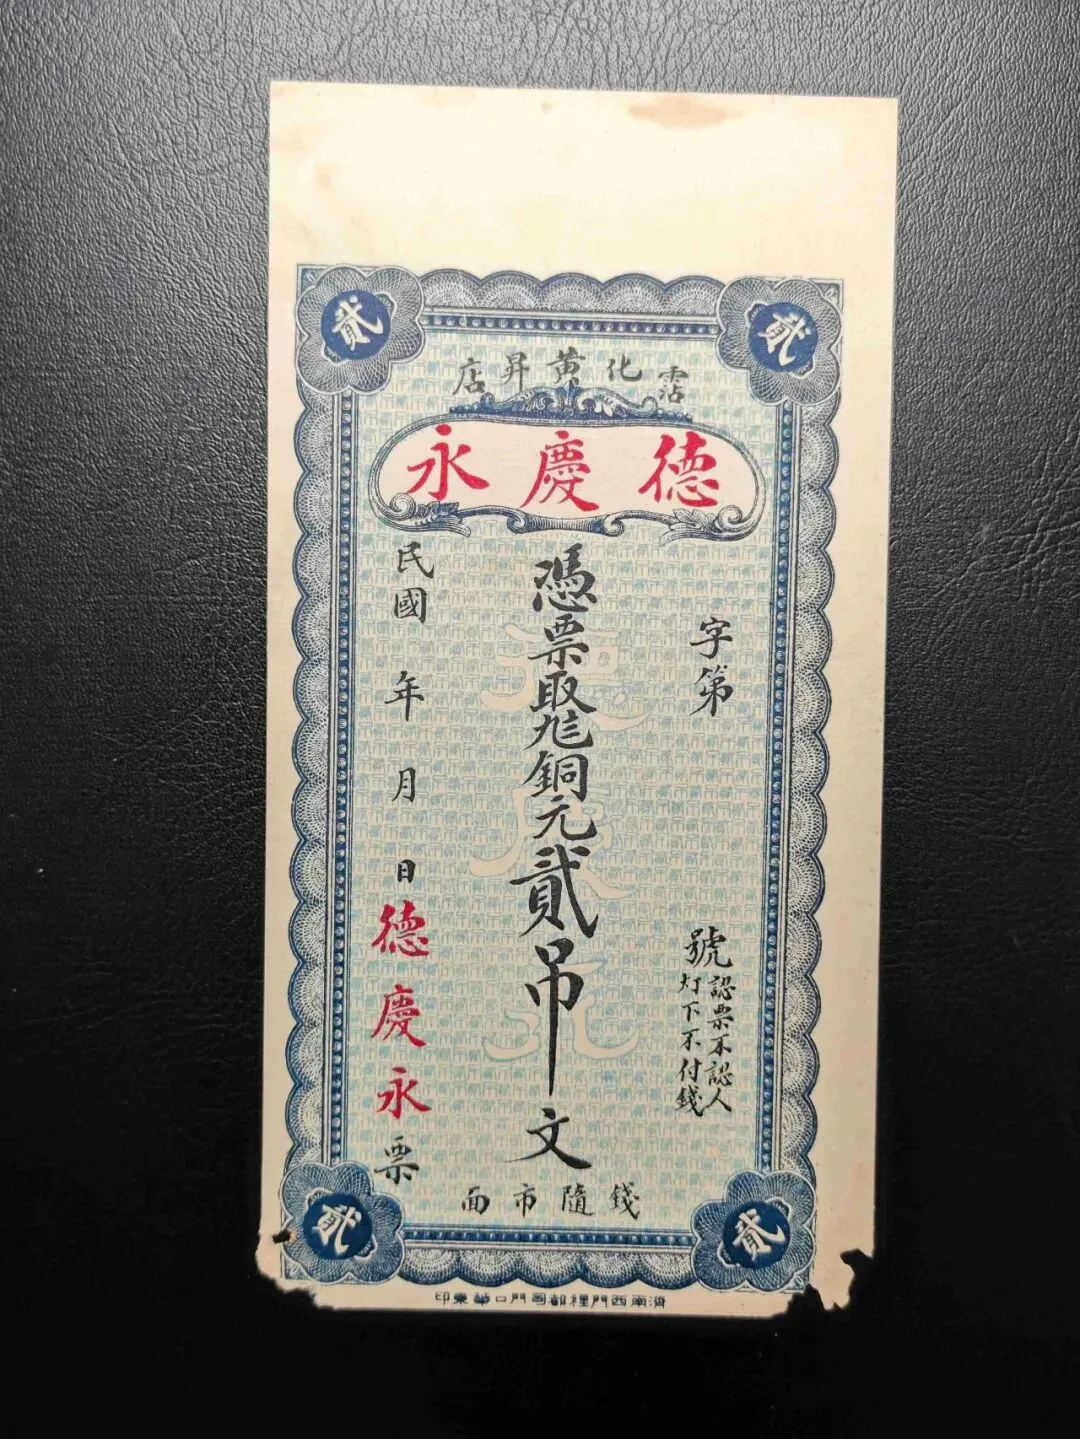 貳
貳
霑化黄昇店
德慶永
字第
號
認票不認人
灯下不付錢
憑票取
銅元貳吊文
民國年月日德慶永票
錢隨市面
德慶永
貳
貳
濟南西門裡都司門口華東印